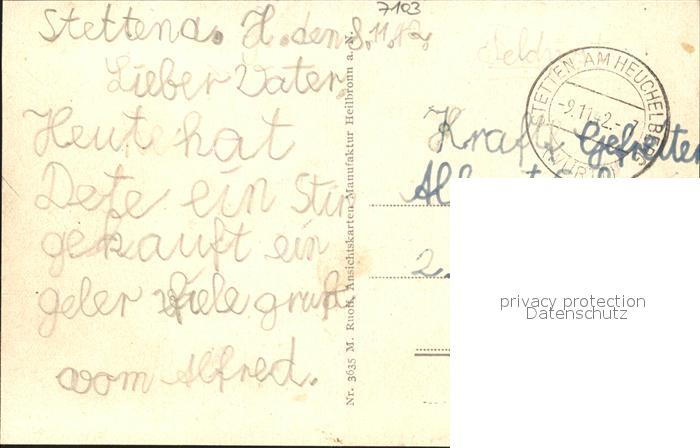 7103
Stettena. H. den 8.11.42.
Lieber Vater.
Heute hat
Dete ein Stir
gekauft ein
geler viele gruß
vom Alfred.
Nr. 3635 M. Ruoff, Ansichtskarten Manufaktur Heilbronn a. N.
STETTEN AM HEUCHELBERG
-9.11.42.-
(WÜRTT)
Kraft, Gefreiter
2.
privacy protection
Datenschutz